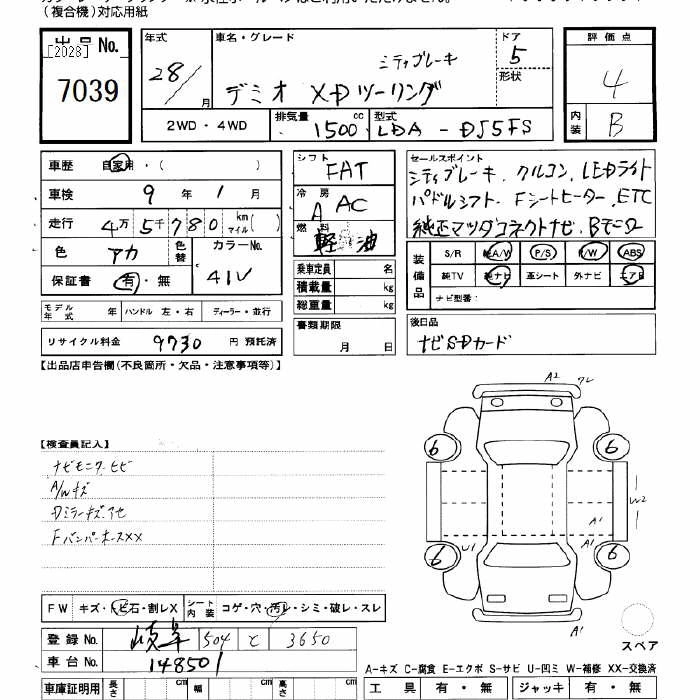 (複合機)対応用紙
出品No.
[2028]
7039
年式
28/
月
車名・グレード
シティブレーキ
デミオ XDツーリング
ドア
5
形状
2WD・4WD
排気量
1500
cc
型式
LDA-DJ5FS
評価点
4
内装
B
車歴 自家用・( )
車検 9 年 1 月
走行 4万 5千 780 km マイル ( )
色 アカ
色替
カラーNo.
41V
保証書 有・無
シフト
FAT
冷房
A AC
燃料
軽油
乗車定員 名
積載量 kg
総重量 kg
セールスポイント
シティブレーキ、クルコン、LEDライト
パドルシフト、Fシートヒーター、ETC
純正マツダコネクトナビ、Bモニタ
装備品
S/R 純A/W P/S P/W ABS
純TV 純ナビ 革シート 外ナビ エアB
ナビ型式:
モデル年式 年 ハンドル 左・右 ディーラー・並行
リサイクル料金 9730 円 預託済
書類期限
月 日
後日品
ナビSDカード
【出品店申告欄(不良箇所・欠品・注意事項等)】
A2
フレ
6
6
6
6
W2
A1
A1
U1
A1
スペア
【検査員記入】
ナビモニターヒビ
A/Wキズ
Dミラーキズアセ
FバンパーホースXX
FW キズ・トビ石・割レX
シート内装
コゲ・穴・汚レ・シミ・破レ・スレ
登録No. 岐阜 504 と 3650
車台No. 148501
車庫証明用 長さ cm 幅 cm 高さ cm
A-キズ C-腐食 E-エクボ S-サビ U-凹ミ W-補修 XX-交換済
工具 有・無 ジャッキ 有・無